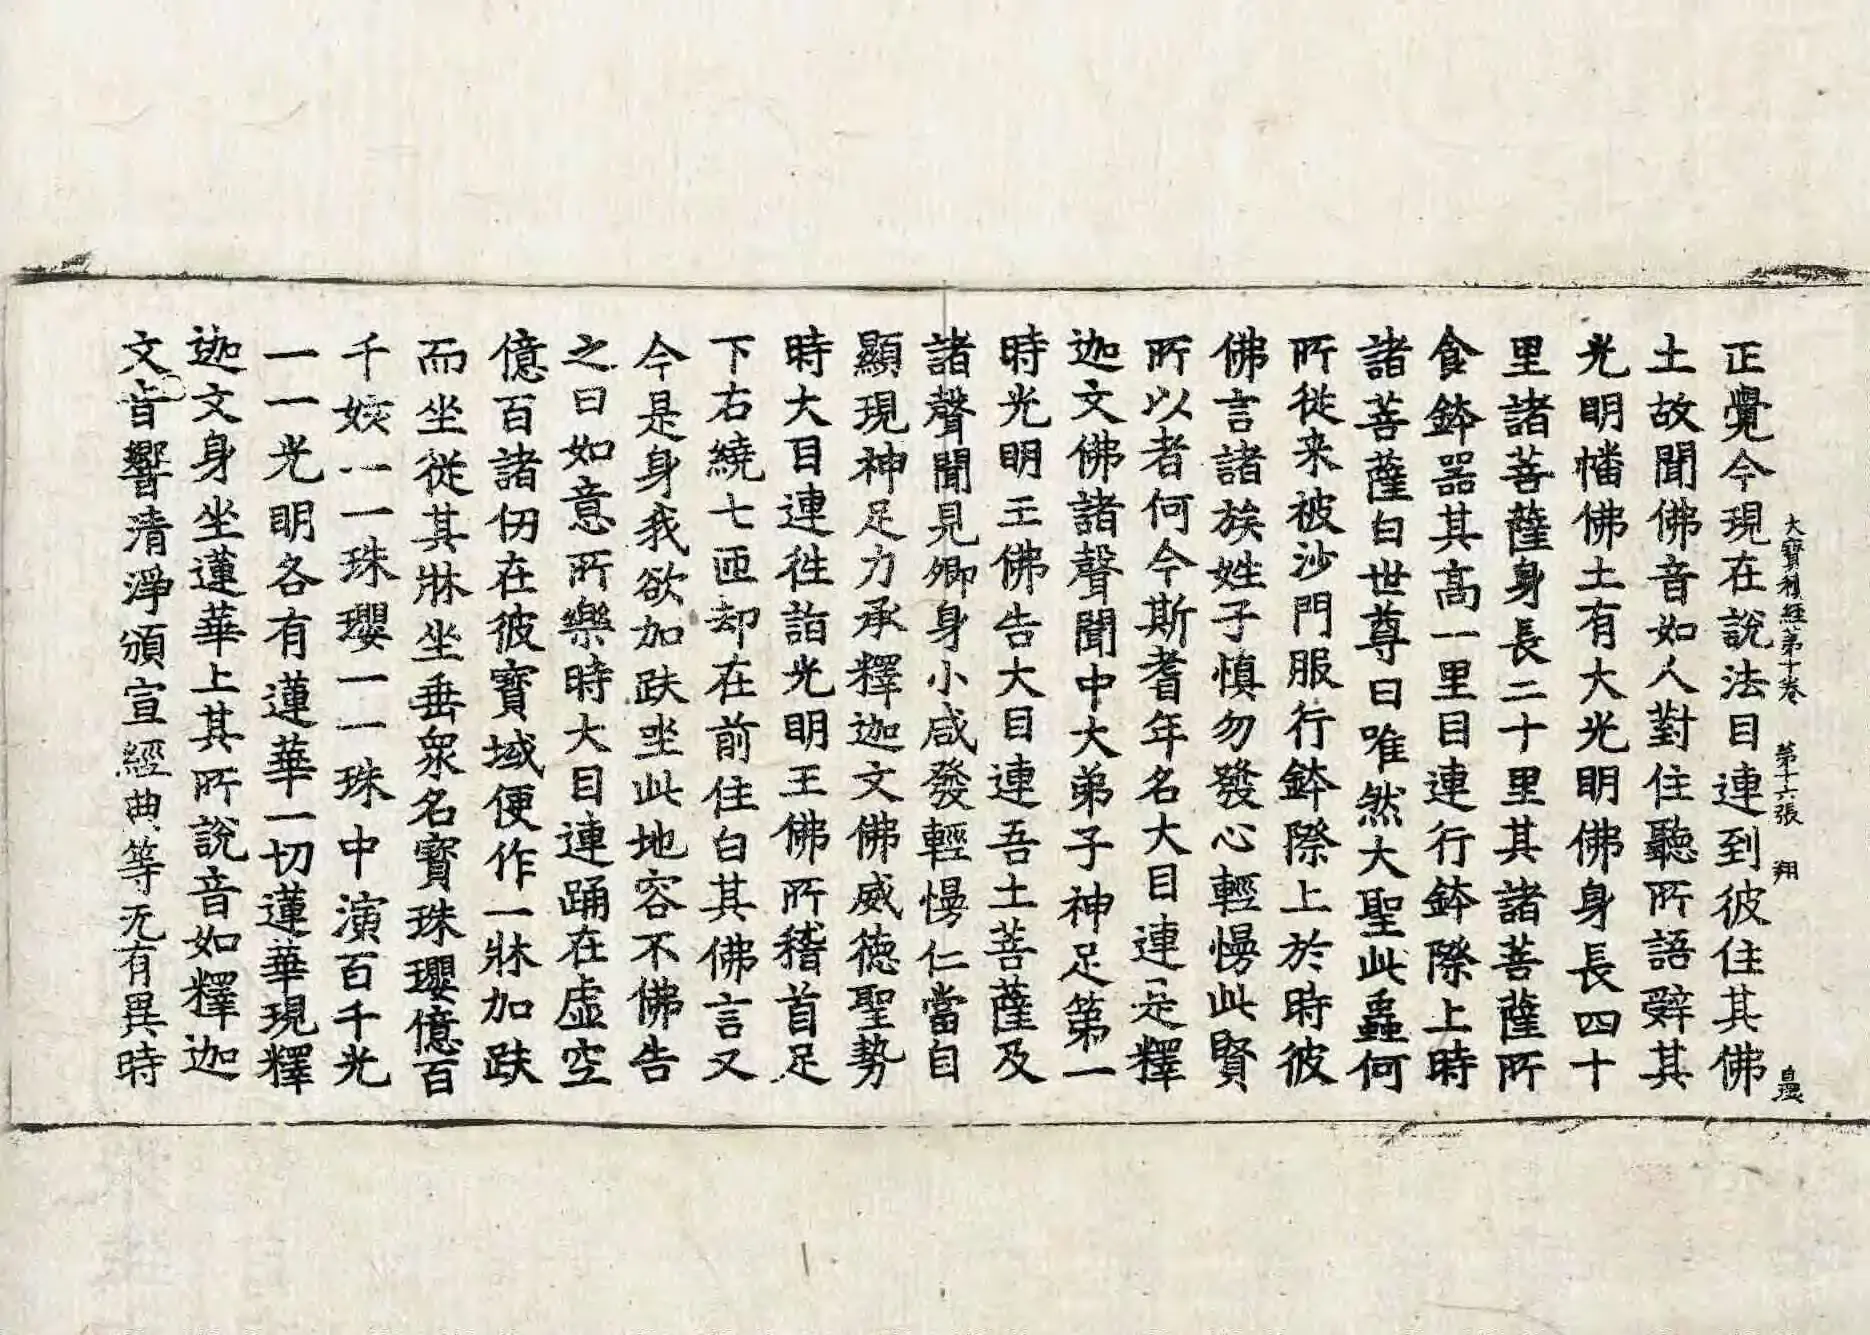 大寶積經第十卷　第十六張　翔
正覺今現在說法目連到彼住其佛
土故聞佛音如人對住聽所語辞其
光明幡佛土有大光明佛身長四十
里諸菩薩身長二十里其諸菩薩所
食鉢器其高一里目連行鉢際上時
諸菩薩白世尊曰唯然大聖此蟲何
所從来被沙門服行鉢際上於時彼
佛言諸族姓子慎勿發心輕慢此賢
所以者何今斯耆年名大目連是釋
迦文佛諸聲聞中大弟子神足第一
時光明王佛告大目連吾土菩薩及
諸聲聞見卿身小咸發輕慢仁當自
顯現神足力承釋迦文佛威德聖勢
時大目連往詣光明王佛所稽首足
下右繞七匝却在前住白其佛言又
今是身我欲加趺坐此地容不佛告
之曰如意所樂時大目連踊在虛空
億百諸仞在彼寶域便作一牀加趺
而坐從其牀坐垂衆名寶珠瓔億百
千姟一一珠瓔一一珠中演百千光
一一光明各有蓮華一切蓮華現釋
迦文身坐蓮華上其所說音如釋迦
文音響清淨頒宣經典等无有異時